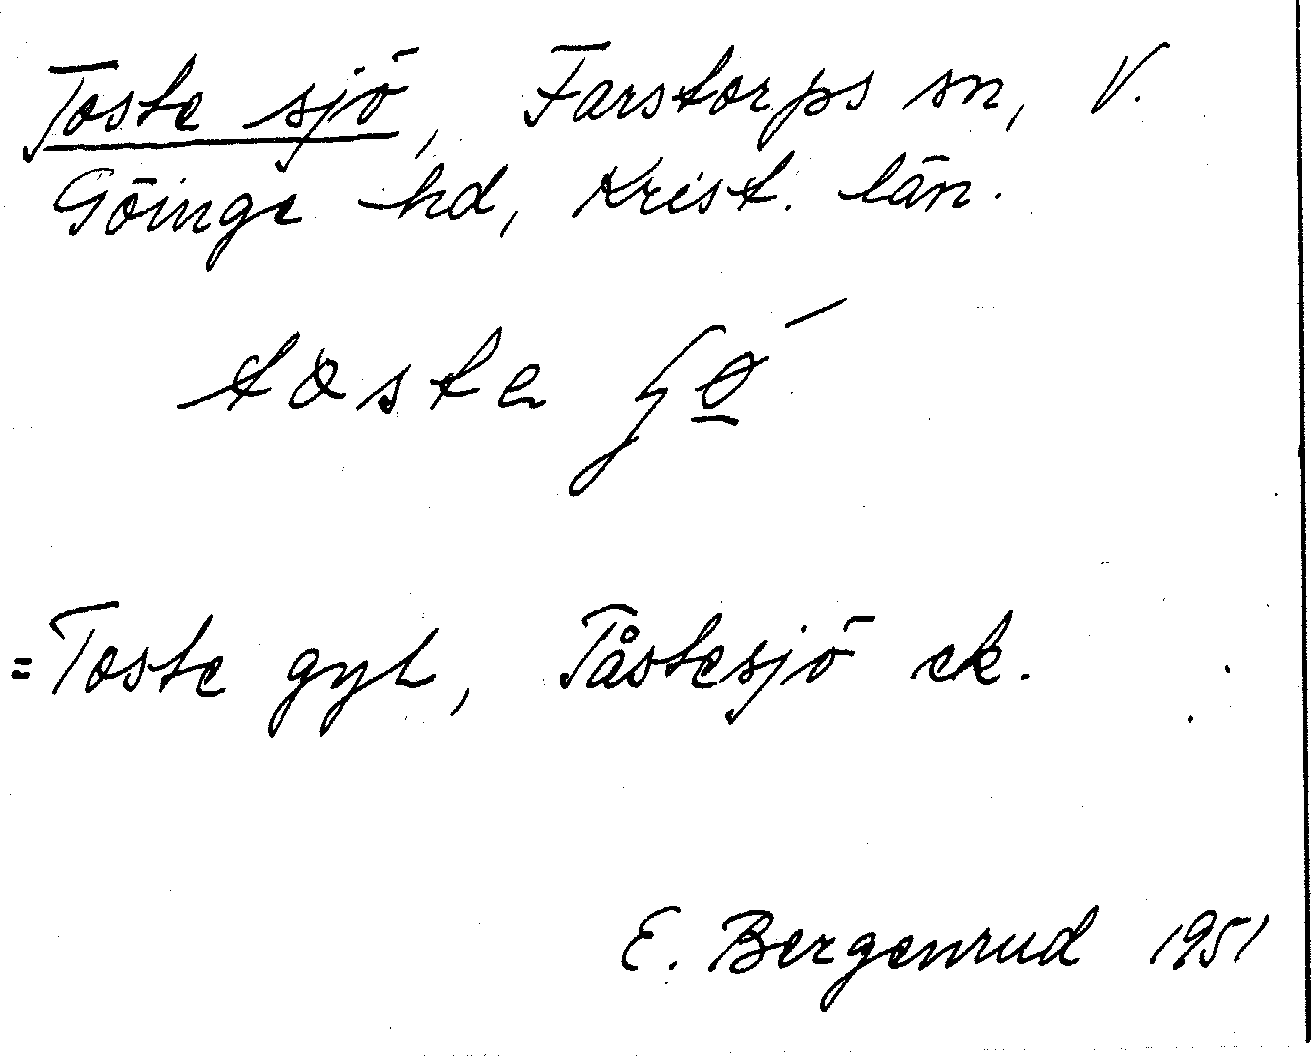 Toste sjö, Farstorps sn, V.
Göinge hd, Krist. län.
toste
= Toste gyl, Tåstesjö ek.
E. Bergenrud 1951